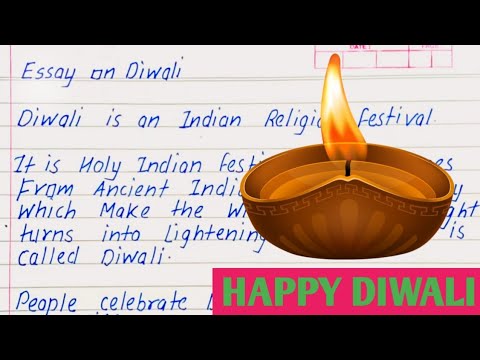 DATE:
Essay on Diwali
Diwali is an Indian festival.
It is Holy Indian
From Ancient
which Make the
turns into Lightening is
called Diwali.
People celebrate
HAPPY DIWALI